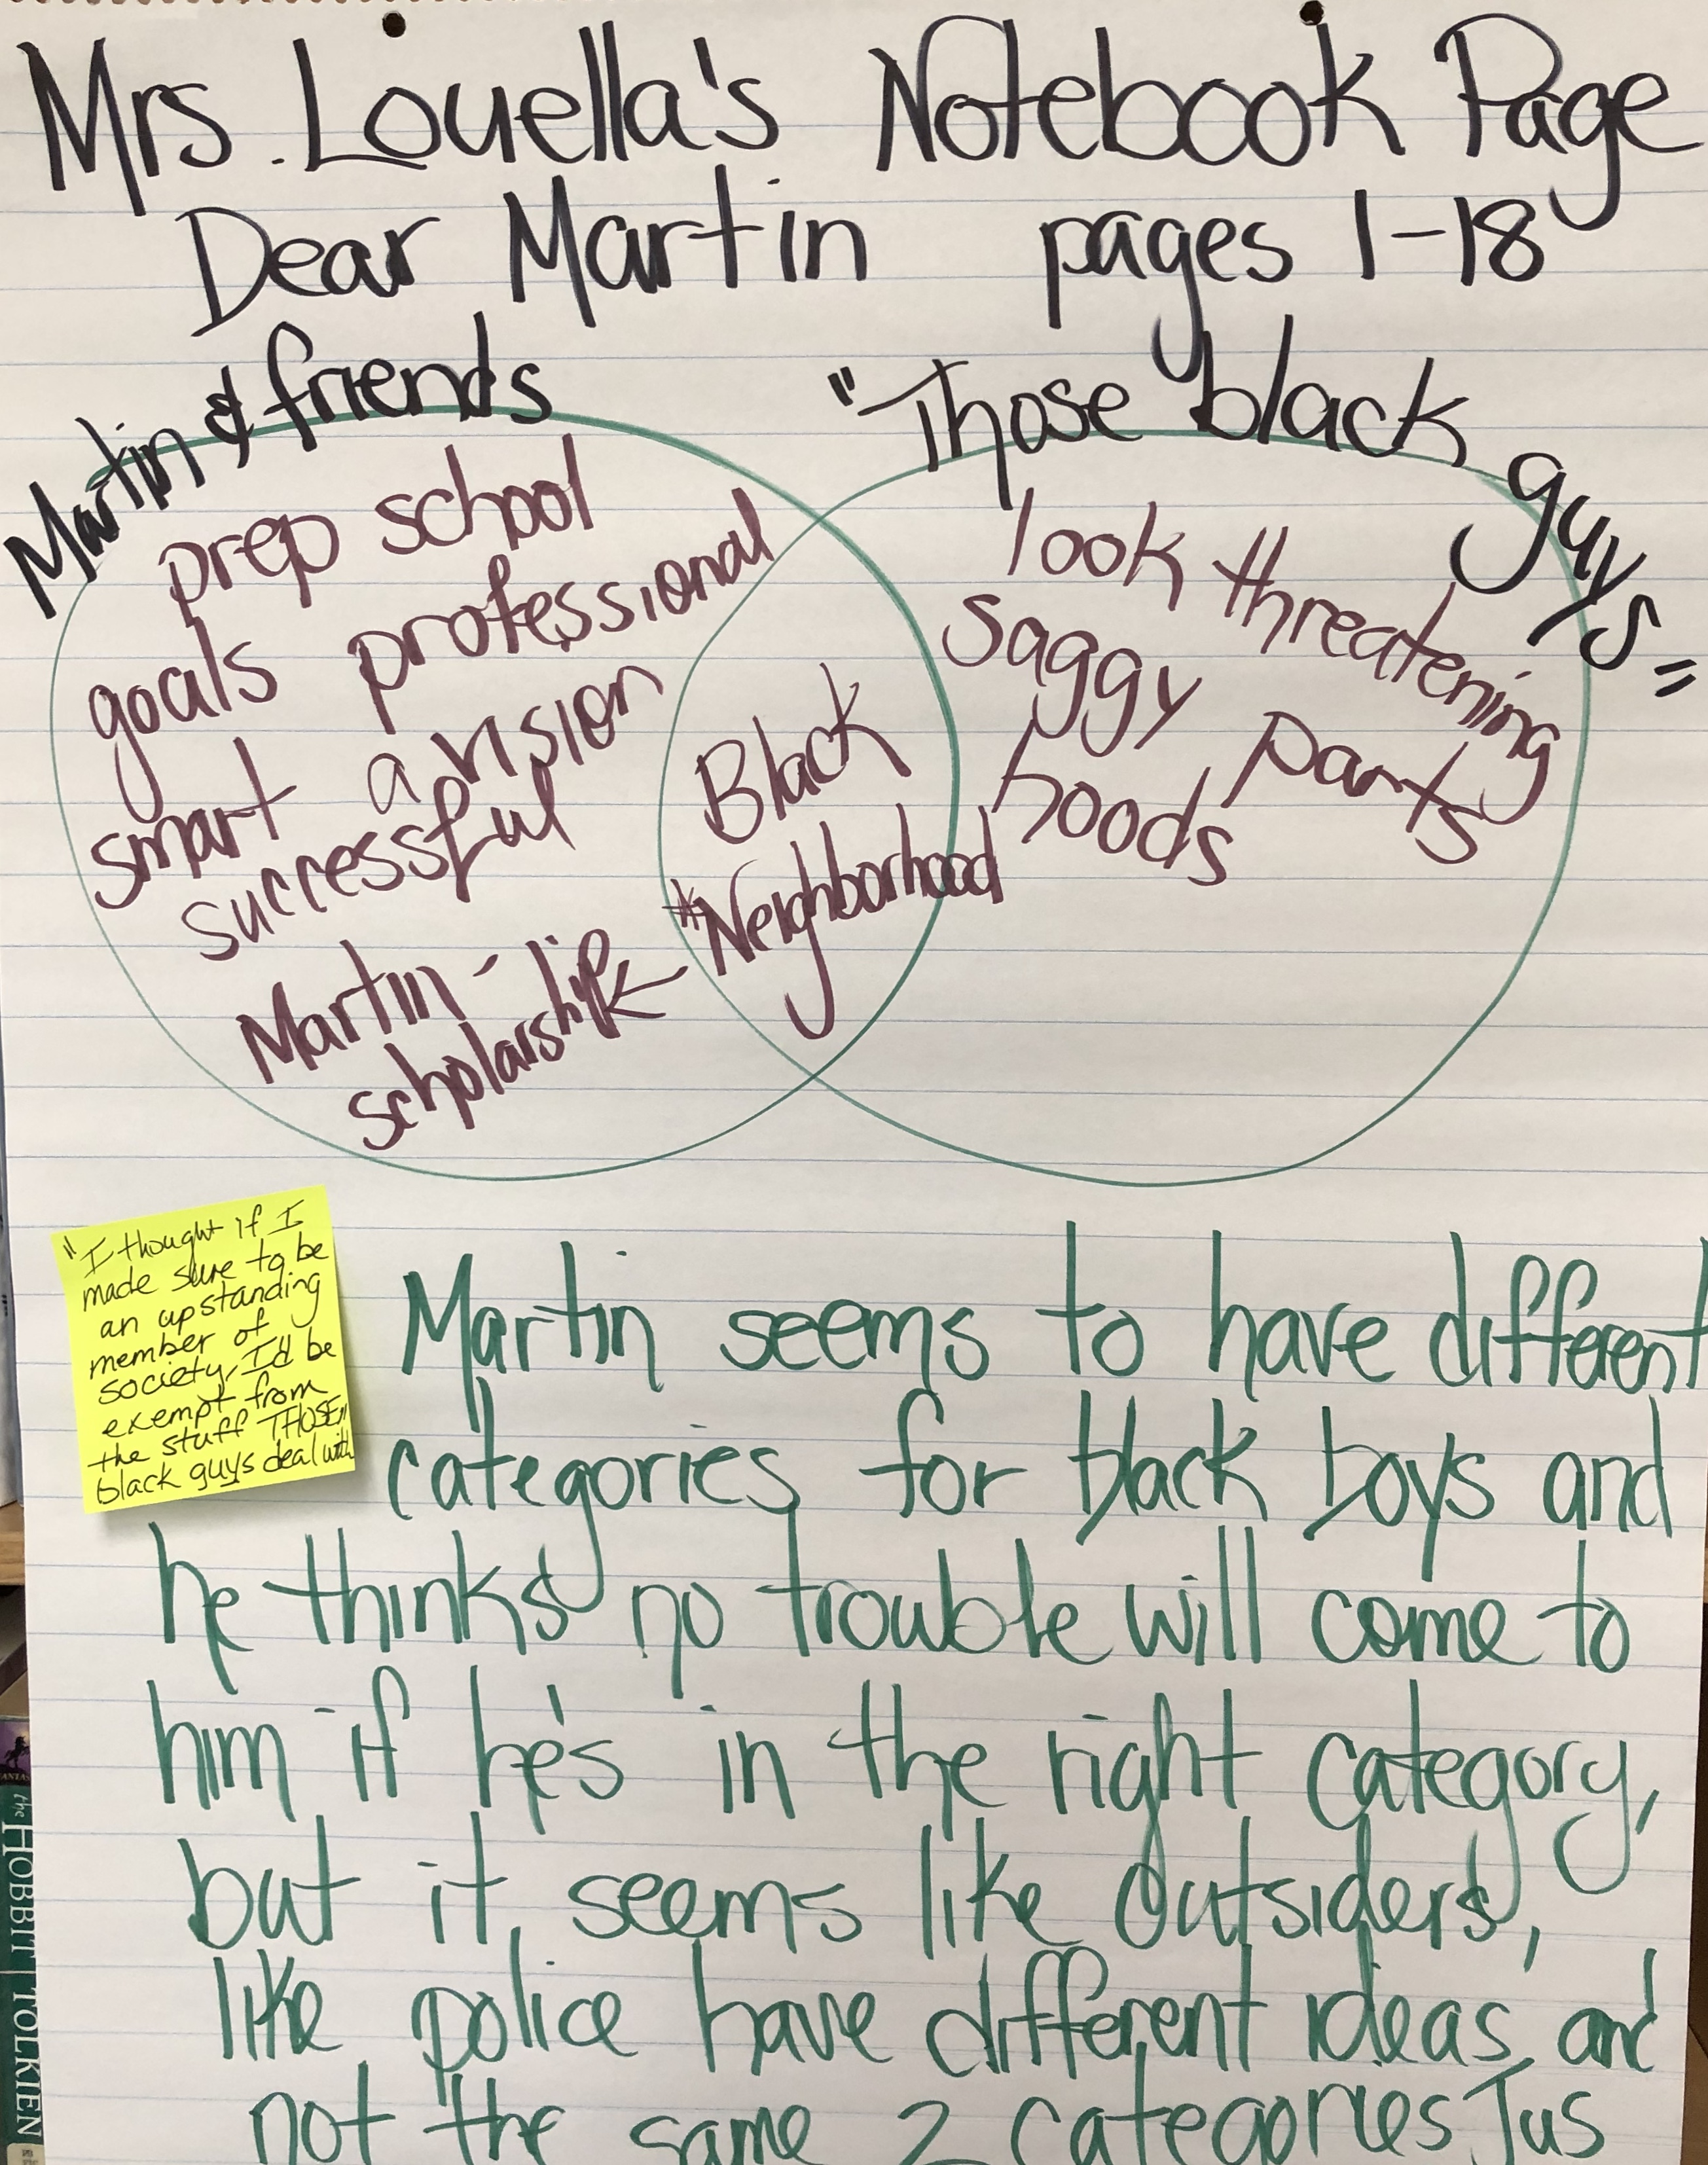 Mrs. Louella's Notebook Page
Dear Martin pages 1-18
Martin & friends
"Those black guys"
prep school
goals professional
smart a vision
successful
Martin -
scholarship
Black
*Neighborhood
look threatening
saggy pants
hoods
"I thought if I
made sure to be
an upstanding
member of
society, I'd be
exempt from
the stuff THOSE
black guys deal with
Martin seems to have different
categories for black boys and
he thinks no trouble will come to
him if he's in the right category,
but it seems like outsiders,
like police have different ideas and
not the same 2 categories Jus
the HOBBIT TOLKIEN